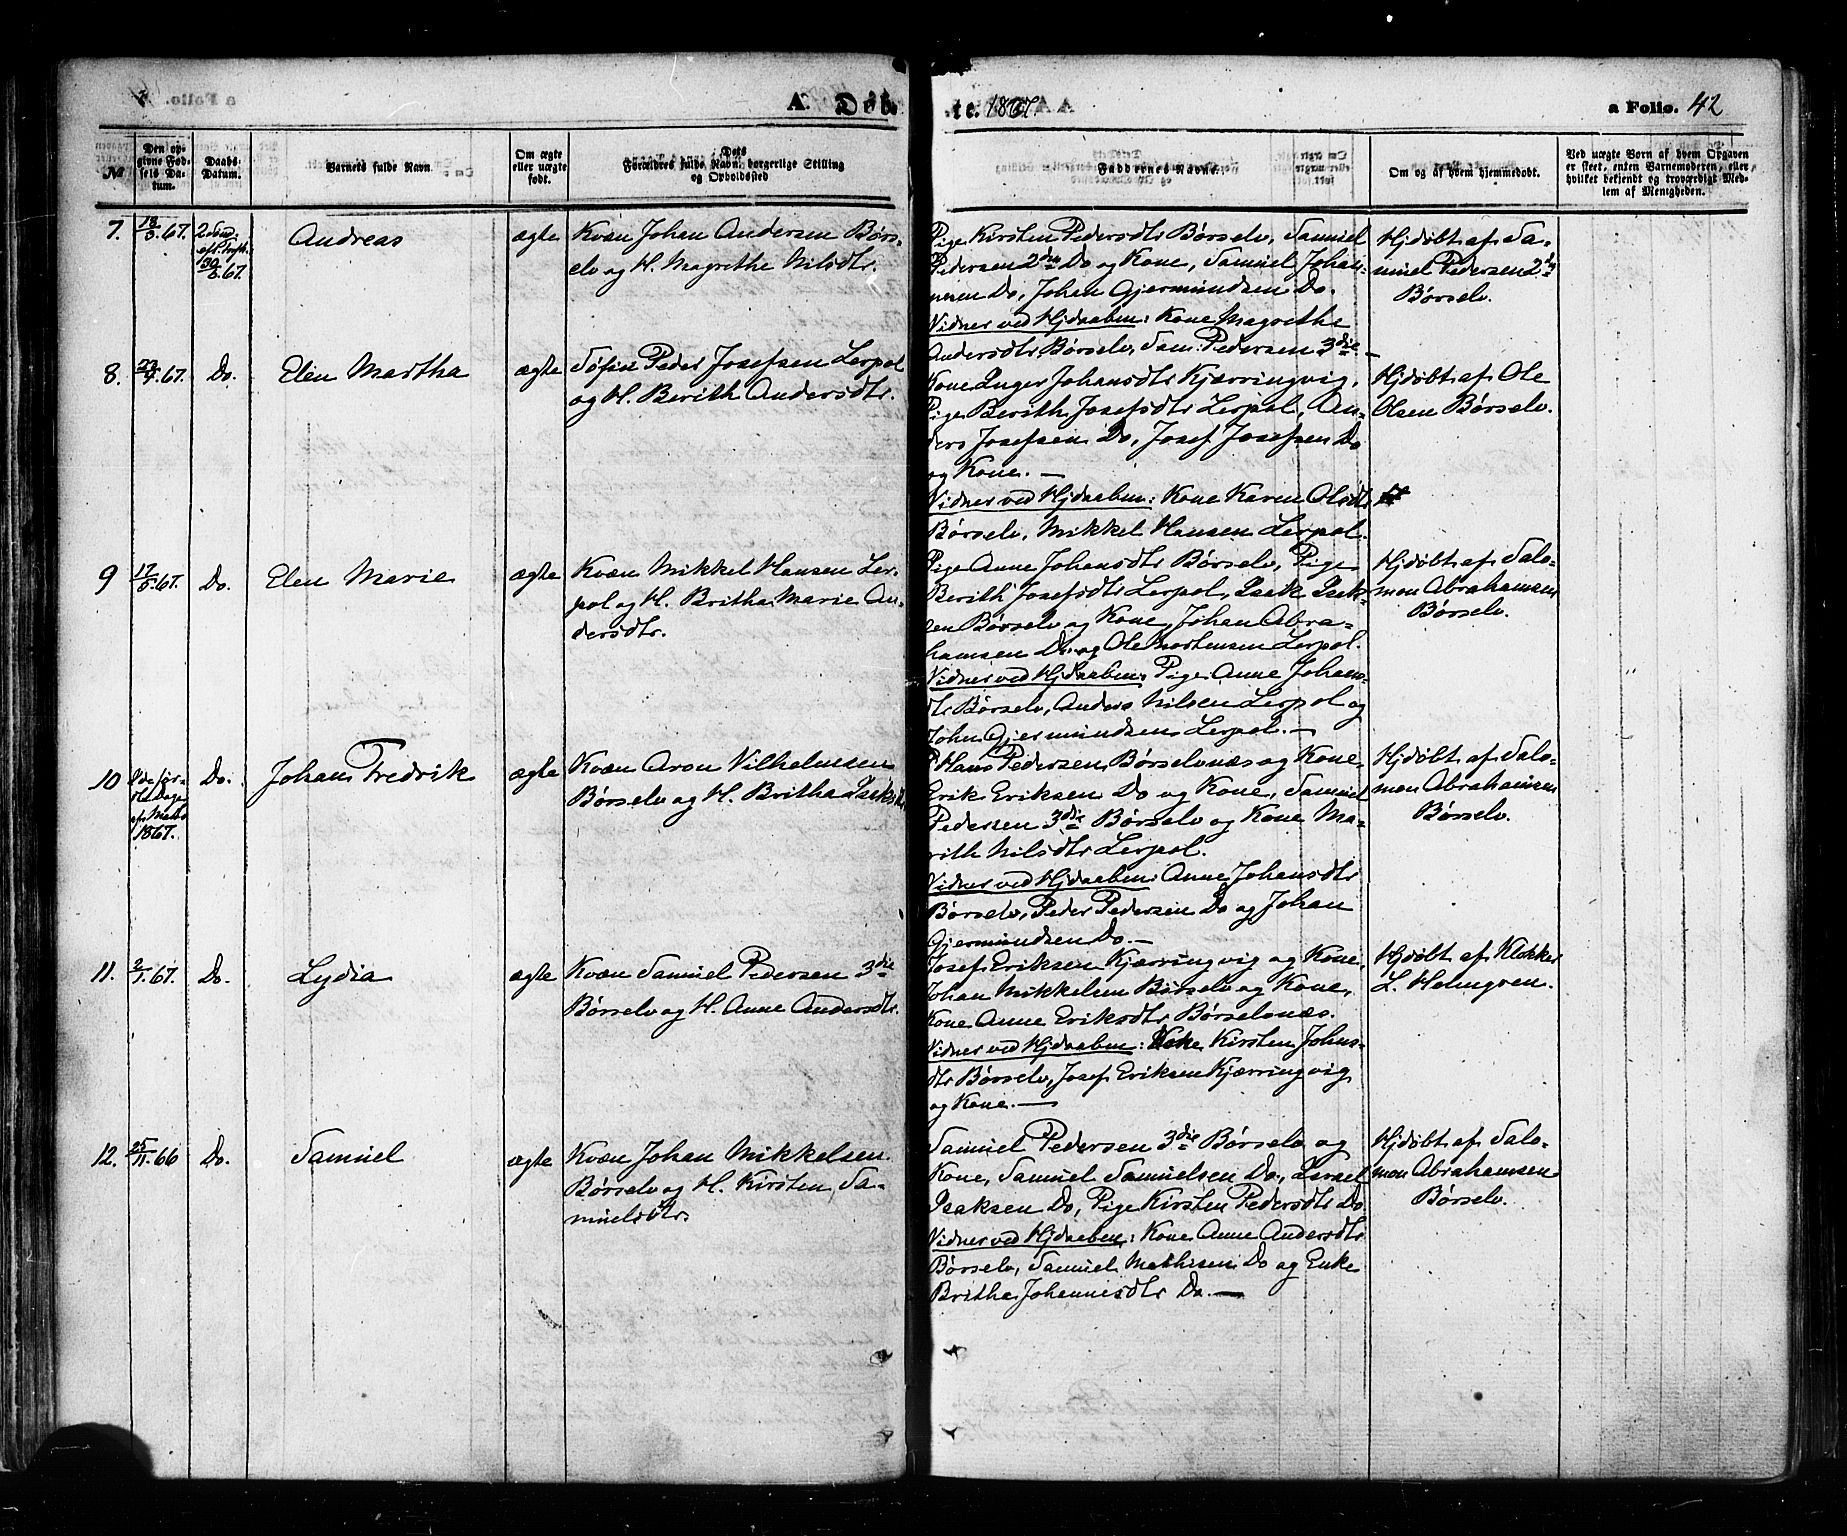 A. Døb-
te. 1867.
a Folio. 42
№
Den op-
givne Fød-
sels Da-
tum.
Daabs-
Datum.
Barnets fulde Navn.
Om ægte
eller uægte
født.
Dets
Forældres fulde Navn, borgerlige Stilling
og Opholdssted
Faddernes Navne.
Om og af hvem hjemmedøbt.
Ved uægte Børn af hvem Opgaven
er skeet, enten Barnemoderen, eller
hvilket bekjendt og troværdigt Med-
lem af Menigheden.
7.
67.
30
67.
Andreas
ægte
Kvæn Johan Andersen Børs-
elv og H. Magrethe Nilsdtr.
Pige Kirsten Pedersdtr Børselv, Samuel
Pedersen 2den Do og Kone, Samuel Johan-
nesen Do, Johan Gjermundsen Do.
Vidner ved Hjdaaben: Kone Magrethe
Andersdtr Børselv, Sam: Pedersen 3die —
Hjdøbt af Sa-
muel Pedersen 2den
Børselv.
8.
67.
Do.
Elen Martha
ægte
Søfin Peder Josefsen Lerpol
og H. Berith Andersdtr.
Kone Inger Johansdtr Kjærringvig,
Pige Berith Josefsdtr Lerpol, An-
ders Josefsen Do, Josef Josefsen Do
og Kone. —
Vidner ved Hjdaaben: Kone Karen Olsdtr
Børselv, Mikkel Hansen Lerpol.
Hjdøbt af Ole
Olsen Børselv.
9
17
67.
Do.
Elen Marie
ægte
Kvæn Mikkel Hansen Ler-
pol og H. Britha Marie An-
dersdtr.
Pige Anne Johansdtr Børselv, Pige
Berith Josefsdtr Lerpol, Isak Isak-
sen Børselv og Kone, Johan Abra-
hamsen Do og Ole Mortensen Lerpol.
Vidner ved Hjdaaben: Pige Anne Johans-
dtr Børselv, Anders Nilsen Lerpol og
John Gjermundsen Lerpol. —
Hjdøbt af Salo-
mon Abrahamsen
Børselv.
10
1867.
Do.
Johan Fredrik
ægte
Kvæn Aron Vilhelmsen
Børselv og H. Britha Isaksdtr
Hans Pedersen Børselvnæs og Kone
Erik Eriksen Do og Kone, Samuel
Pedersen 3die Børselv og Kone Ma-
rith Nilsdtr Lerpol.
Vidner ved Hjdaaben: Anne Johansdtr
Børselv, Peder Pedersen Do og Johan
Gjermundsen Do. —
Hjdøbt af Salo-
mon Abrahamsen
Børselv.
11.
2/1 67.
Do.
Lydia
ægte
Kvæn Samuel Pedersen 3die
Børselv og H. Anne Andersdtr.
Josef Eriksen Kjærringvig og Kone,
Johan Mikkelsen Børselv og Kone,
Kone Anne Eriksdtr Børselvnæs.
Vidner ved Hjdaaben: Kirsten Johns-
dtr Børselv, Josef Eriksen Kjærringvig
og Kone. —
Hjdøbt af Klokker
L. Holmgren.
12.
25/11 66
Do.
Samuel
ægte
Kvæn Johan Mikkelsen
Børselv og H. Kirsten Sa-
muelsdtr.
Samuel Pedersen 3die Børselv og
Kone, Samuel Samuelsen Do, Israel
Isaksen Do, Pige Kirsten Pedersdtr Do
Vidner ved Hjdaaben: Kone Anne Andersdtr
Børselv, Samuel Mathisen Do og Enke
Britha Johannesdtr Do. —
Hjdøbt af Salo-
mon Abrahamsen
Børselv.